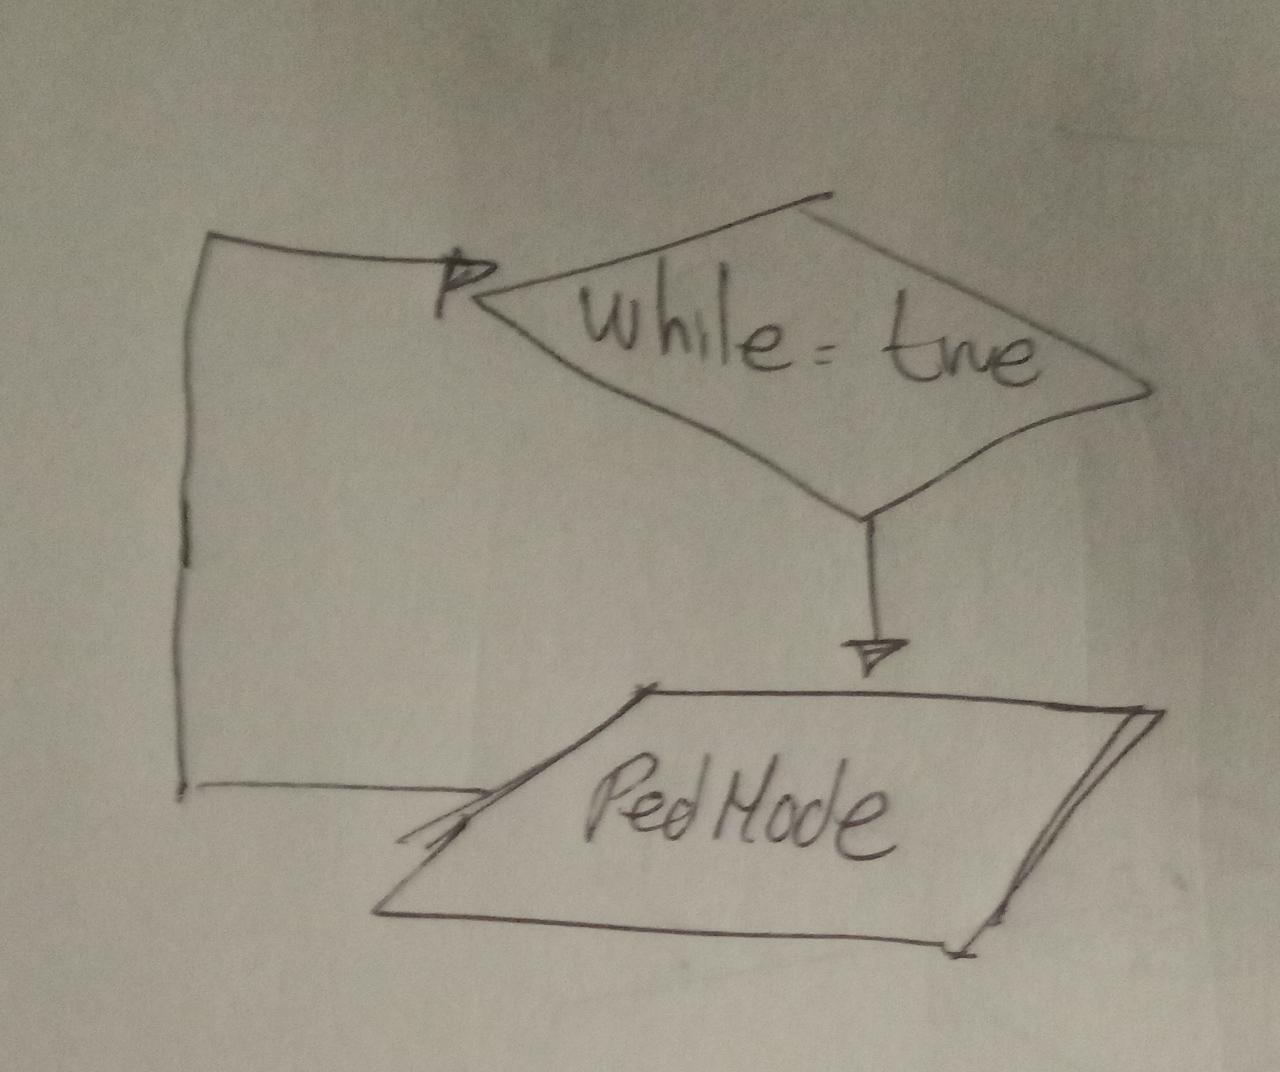 while = true
PedMode